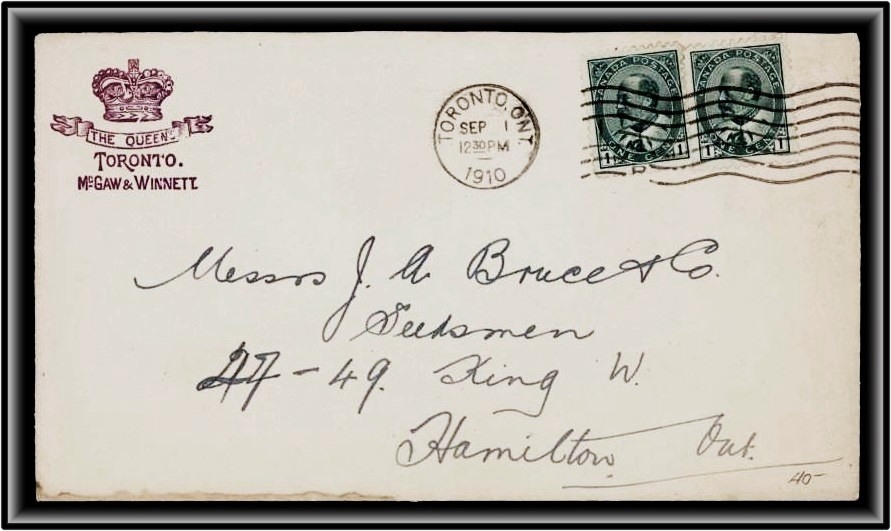 THE QUEEN'S
TORONTO.
McGAW & WINNETT.
TORONTO, ONT.
SEP 1
12 30 PM
1910
CANADA POSTAGE
1 ONE CENT 1
CANADA POSTAGE
1 ONE CENT 1
Messrs J. A. Bruce & Co.
Seedsmen
47-49. King W.
Hamilton Ont.
40-